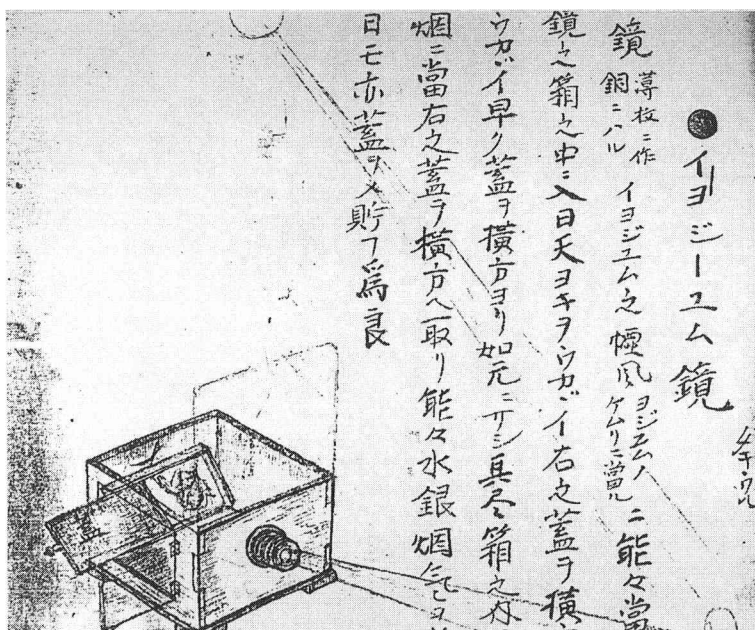 ●イヨジーユム鏡
鏡 薄板ニ作 銅ニハル イヨジユム之煙風 ヨジユムノ ケムリニ當ル ニ能々當
鏡之箱之中ニ入日天ヨキヲウカヾイ右之蓋ヲ横
ウカヾイ早ク蓋ヲ横方ヨリ如元ニサシ其尽箱之内
烟ニ當右之蓋ヲ横方ヘ取リ能々水銀烟气ヲ
日モ亦蓋ヲメ貯フ爲良
蓋